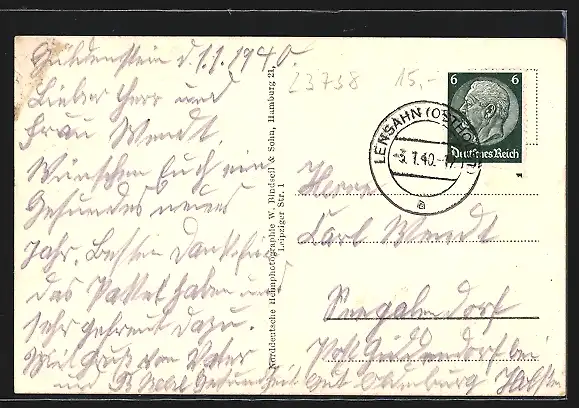 Güldenstein d. 1.1.1940.
Lieber Herr und
Frau Wendt
Wünschen Euch ein
Gesundes neues
Jahr. Besten Dank für
das Paket haben uns
sehr gefreut dazu.
Mit Gruß von Vater
und
Gesundheit
23738
15,-
Norddeutsche Heimphotographie W. Bindseil & Sohn, Hamburg 21,
Leipziger Str. 1
6 6
Deutsches Reich
LENSAHN (OSTHO
-3. 1. 40.-17
a
Herrn
Karl Wendt
Seegalendorf
Post bei
Gut Oldenburg Holstein